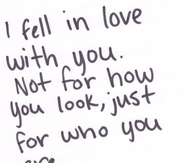 I fell in love
with you.
Not for how
you look, just
for who you